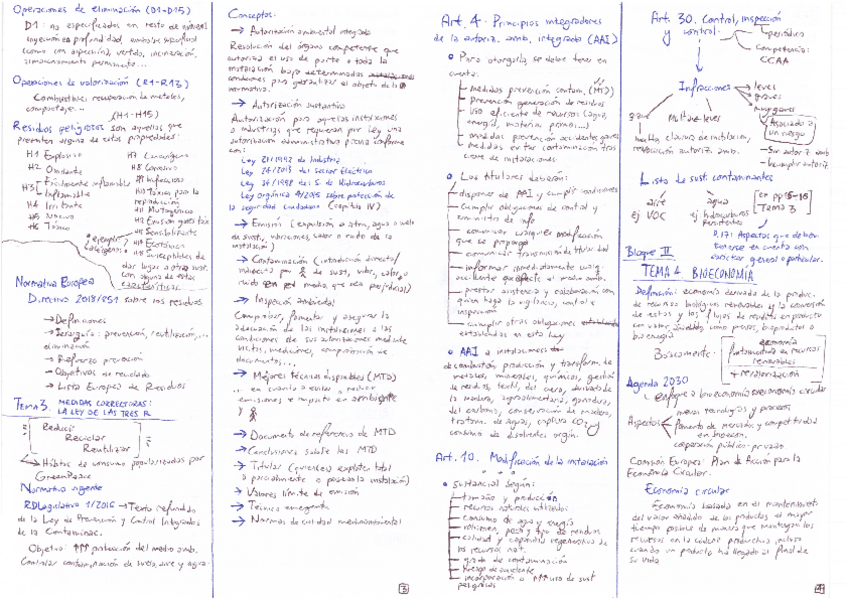 Operaciones de eliminación (D1-D15)
D1: no especificadas en resto de números
Operaciones de valorización (R1-R13)
Combustible, recuperación de metales,
compostaje...
(H1-H15)
Residuos peligrosos son aquellos que
presenten alguna de estas propiedades:
H1 Explosivo
H2 Oxidante
H3 Fácilmente inflamable
Inflamable
H4 Irritante
H5 Nocivo
H6 Tóxico
H7 Cancerígeno
H8 Corrosivo
H9 Infeccioso
H10 Tóxico para la
reproducción
H11 Mutagénico
H12 Emisión gases tóx
H13 Sensibilizante
H14 Ecotóxico
H15 Susceptibles de
dar lugar a otra sust.
con alguna de estas
características
Normativa Europea
Directiva 2018/851 sobre los residuos
→ Definiciones
→ Jerarquía: prevención, reutilización,...
eliminación
→ Refuerzo prevención
→ Objetivos de reciclado
→ Lista Europea de Residuos
Tema 3. MEDIDAS CORRECTORAS:
LA LEY DE LAS TRES R
Reducir
Reciclar
Reutilizar
Hábitos de consumo popularizadas por
GreenPeace
Normativa vigente
RDLegislativo 1/2016 → Texto refundido
de la Ley de Prevención y Control Integrados
de la Contaminac.
Objetivo: ↑↑↑ protección del medio amb.
Controlar contaminación de suelo, aire y agua
Conceptos
→ Autorización ambiental integrada
Resolución del órgano competente que
autoriza el uso de parte o toda la
instalación bajo determinadas
condiciones para garantizar el objeto de la
normativa.
→ Autorización sustantiva
Autorización para aquellas instalaciones
o industrias que requieran por ley una
autorización administrativa previa conforme
con:
Ley 21/1992 de Industria
Ley 24/2013 del Sector Eléctrico
Ley 34/1998 de S. de Hidrocarburos
Ley Orgánica 4/2015 sobre protección de
la seguridad ciudadana (capítulo IV)
→ Emisión (expulsión a atm, agua o suelo
de sust, vibraciones, calor o ruido de la
instalación)
→ Contaminación (introducción directa/
indirecta por de sust, vibr, calor o
ruido en medio que sea perjudicial)
→ Inspección ambiental
Comprobar, fomentar y asegurar la
adecuación de las instalaciones a las
condiciones de sus autorizaciones mediante
visitas, mediciones, comprobación de
documentos,...
→ Mejores técnicas disponibles (MTD)
... en cuanto a evitar o reducir
emisiones e impacto en ambiente
y
→ Documento de referencia de MTD
→ Conclusiones sobre las MTD
→ Titular (quien explota total
o parcialmente o posea la instalación)
→ Valores límite de emisión
→ Técnica emergente
→ Normas de calidad medioambiental
3
Art. 4. Principios integradores
de la autoriz. amb. integrada (AAI)
• Para otorgarla, se debe tener en
cuenta:
medidas prevención contam. (MTD)
prevención generación de residuos
uso eficiente de recursos (agua,
energía, materias primas...)
medidas prevención accidentes graves
medidas evitar contaminación tras
cierre de instalaciones.
• Los titulares deberán:
disponer de AAI y cumplir condiciones
cumplir obligaciones de control y
suministro de info
comunicar cualquier modificación
que se proponga
comunicar transmisión de titularidad
informar inmediatamente
accidente que afecte al medio amb.
prestar asistencia y colaboración con
quien haga la vigilancia, control e
inspección
cumplir otras obligaciones
establecidas en esta ley
• AAI a instalaciones
de combustión, producción y transform. de
metales, minerales, químicas, gestión
de residuos, textil, del cuero, derivados de
la madera, agroalimentaria, ganadera,
del carbono, conservación de madera,
tratam. de aguas, captura CO2 y
consumo de disolventes orgán.
Art. 10. Modificación de la instalación
• Sustancial según:
tamaño y producción
recursos naturales utilizados
consumo de agua y energía
volumen, peso y tipo de residuos
calidad y capacidad regenerativa de
los recursos nat.
grado de contaminación
riesgo de accidente
incorporación o ↑↑ uso de sust
peligrosas
Art. 30. Control, inspección
y control
periódica
Competencia:
CCAA
Infracciones
leves
graves
muy graves
multa, clausura de instalación,
revocación autoriz. amb.
Multa → leves
Asociado a
un riesgo
- Sin autoriz. amb
- Incumplir autoriz
Lista de sust. contaminantes
aire
ej VOC
agua
ej hidrocarburos
persistentes
[en pp 15-16
Tema 3]
P.17: Aspectos que deben
tenerse en cuenta con
carácter general o particular.
Bloque II
TEMA 4. BIOECONOMÍA
Definición: economía derivada de la produc.
de recursos biológicos renovables y la conversión
de estos y los flujos de residuos en productos
con valor añadido como piensos, bioproductos o
bioenergía
economía
recursos
renovables
Agenda 2030
Enfoque a bioeconomía circular
Aspectos
nuevas tecnologías y procesos
fomento de mercados y competitividad
en bioecon.
cooperación público-privada
Comisión Europea: Plan de Acción para la
Economía Circular.
Economía circular
Economía basada en el mantenimiento
del valor añadido de los productos el mayor
tiempo posible de manera que mantengan los
recursos en la cadena productiva incluso
cuando un producto ha llegado al final de
su vida
4